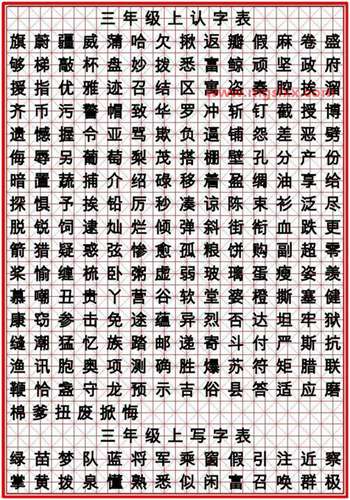 三年级上认字表
旗蔚疆威蒲哈欠揪返瓣假麻卷盛
够梯敲杯盘妙拨悉富鲸顽坚政府
援指优雅迹召结区寓姿奏腔挨溜
齐币污警帽致华罗冲斩钉截授博
遗憾握令亚骂欺负逼铺怨差恶劈
侮辱另葡萄梨茂搭棚壁孔分产份
暗置蔬捕介绍碌移着盈绸油享给
探惧予挨铅厉秒凑谅陈束衫泛尽
脱锐饲逮灿烂倾弹斜街衔血跌更
箭猎疑惑弦惨愈孤粮饼购副超零
桨愉缠梳卧粥虚弱玻璃蛋瘦姿羡
慕嘲丑贵丫营谷软堂婆橙撕塞健
康窃参击免途蕴异烈否达坦牢狱
缝潮猛忆族踏邮递寄斗付严斯抗
渔讯胞奥项测确胜爆苏符矩腊联
鞭恰盏守龙预示吉俗县答适应磨
棉爹扭废掀悔
三年级上写字表
绿苗梦队蓝将军乘窗假引注近察
掌黄拨泉懂熟悉似闲富召唤群极